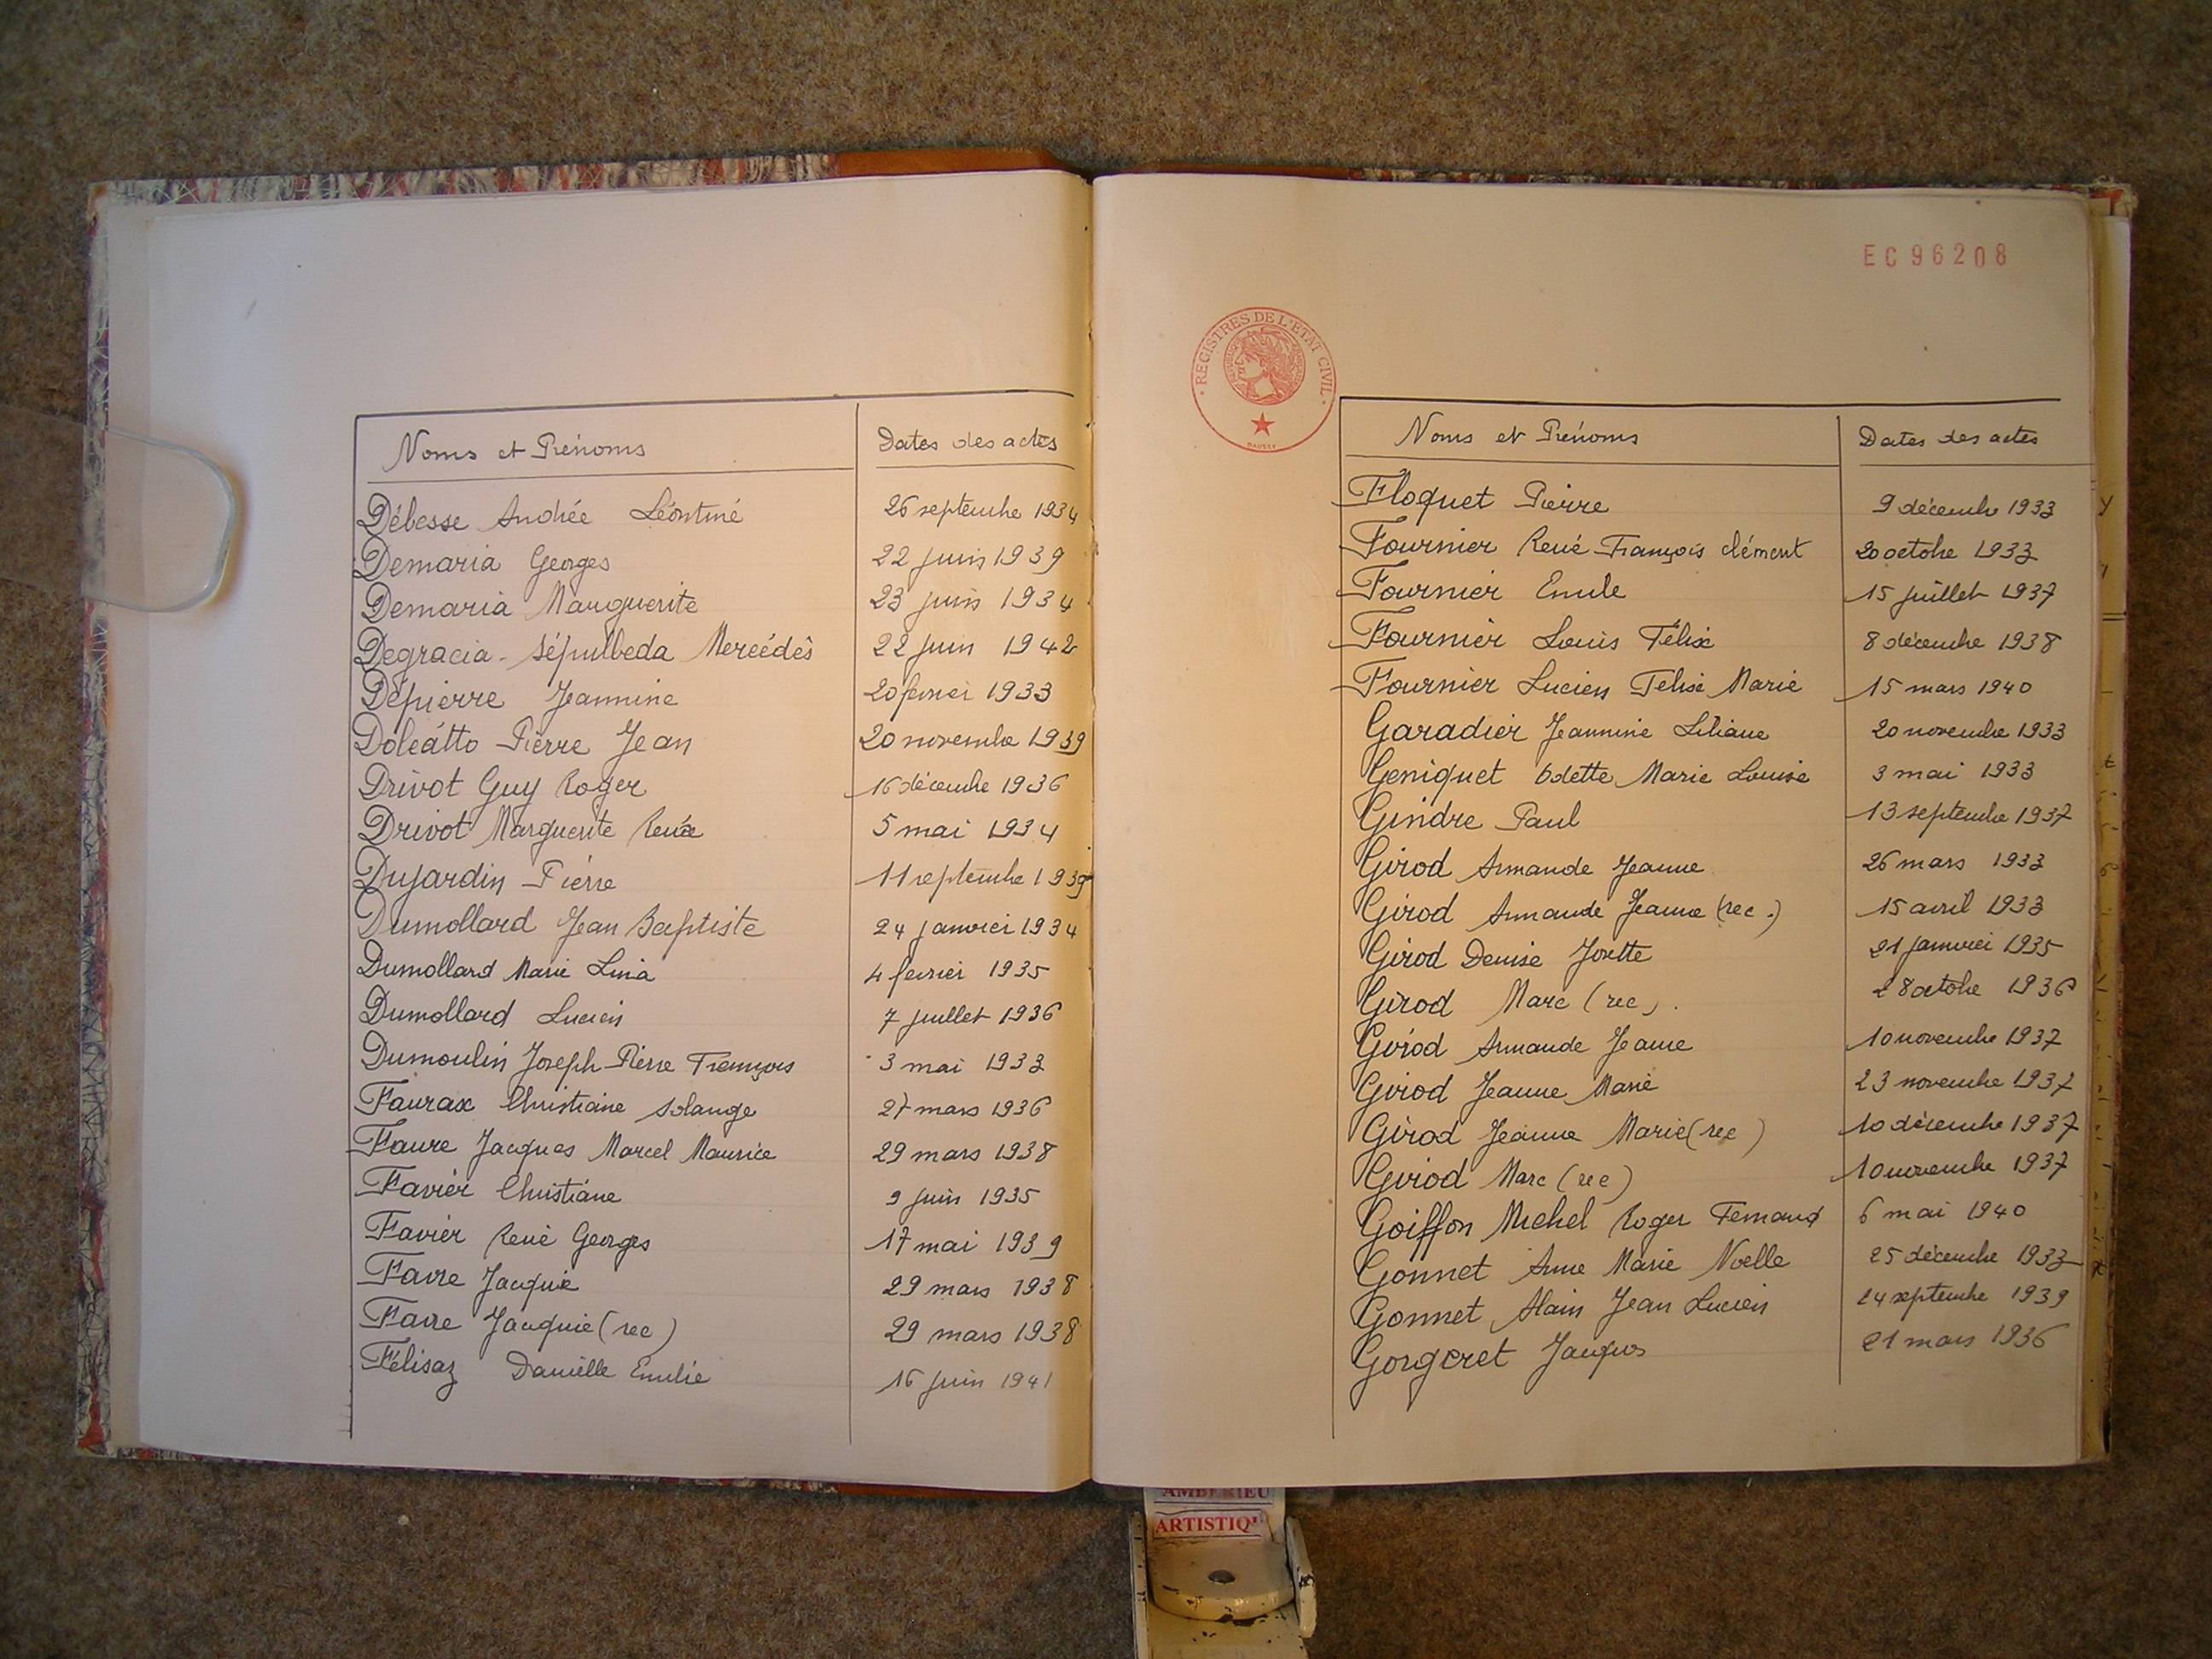 Noms et Prénoms Dates des actes
Débesse Andrée Léontine 26 septembre 1934
Demaria Georges 22 juin 1939
Demaria Marguerite 23 juin 1934
Degracia - Sépulbeda Mercédès 22 juin 1942
Depierre Jeannine 20 février 1933
Doleatto Pierre Jean 20 novembre 1939
Drivot Guy Roger 16 décembre 1936
Drivot Marguerite Renée 5 mai 1934
Dujardin Pierre 11 septembre 1939
Dumollard Jean Baptiste 24 janvier 1934
Dumollard Marie Lina 4 février 1935
Dumollard Lucien 7 juillet 1936
Dumoulin Joseph Pierre François 3 mai 1933
Faurax Christiane Solange 27 mars 1936
Faure Jacques Marcel Maurice 29 mars 1938
Favier Christiane 9 juin 1935
Favier René Georges 17 mai 1939
Favre Jacquie 29 mars 1938
Favre Jacquie (rec) 29 mars 1938
Félisaz Danielle Emilie 16 juin 1941
EC96208
REGISTRES DE L'ETAT CIVIL
Noms et Prénoms Dates des actes
Floquet Pierre 9 décembre 1933
Fournier René François Clément 20 octobre 1933
Fournier Emile 15 juillet 1937
Fournier Louis Félix 8 décembre 1938
Fournier Lucien Félix Marie 15 mars 1940
Garadier Jeannine Liliane 20 novembre 1933
Geniquet Odette Marie Louise 3 mai 1933
Gindre Paul 13 septembre 1937
Girod Armande Jeanne 26 mars 1933
Girod Armande Jeanne (rec.) 15 avril 1933
Girod Denise Josette 21 janvier 1935
Girod Marc (rec). 28 octobre 1936
Girod Armande Jeanne 10 novembre 1937
Girod Jeanne Marie 23 novembre 1937
Girod Jeanne Marie (rec) 10 décembre 1937
Girod Marc (rec) 10 novembre 1937
Goiffon Michel Roger Fernand 6 mai 1940
Gonnet Anne Marie Noelle 25 décembre 1933
Gonnet Alain Jean Lucien 14 septembre 1939
Gorgeret Jacques 21 mars 1936
AMBERIEU
ARTISTIQU